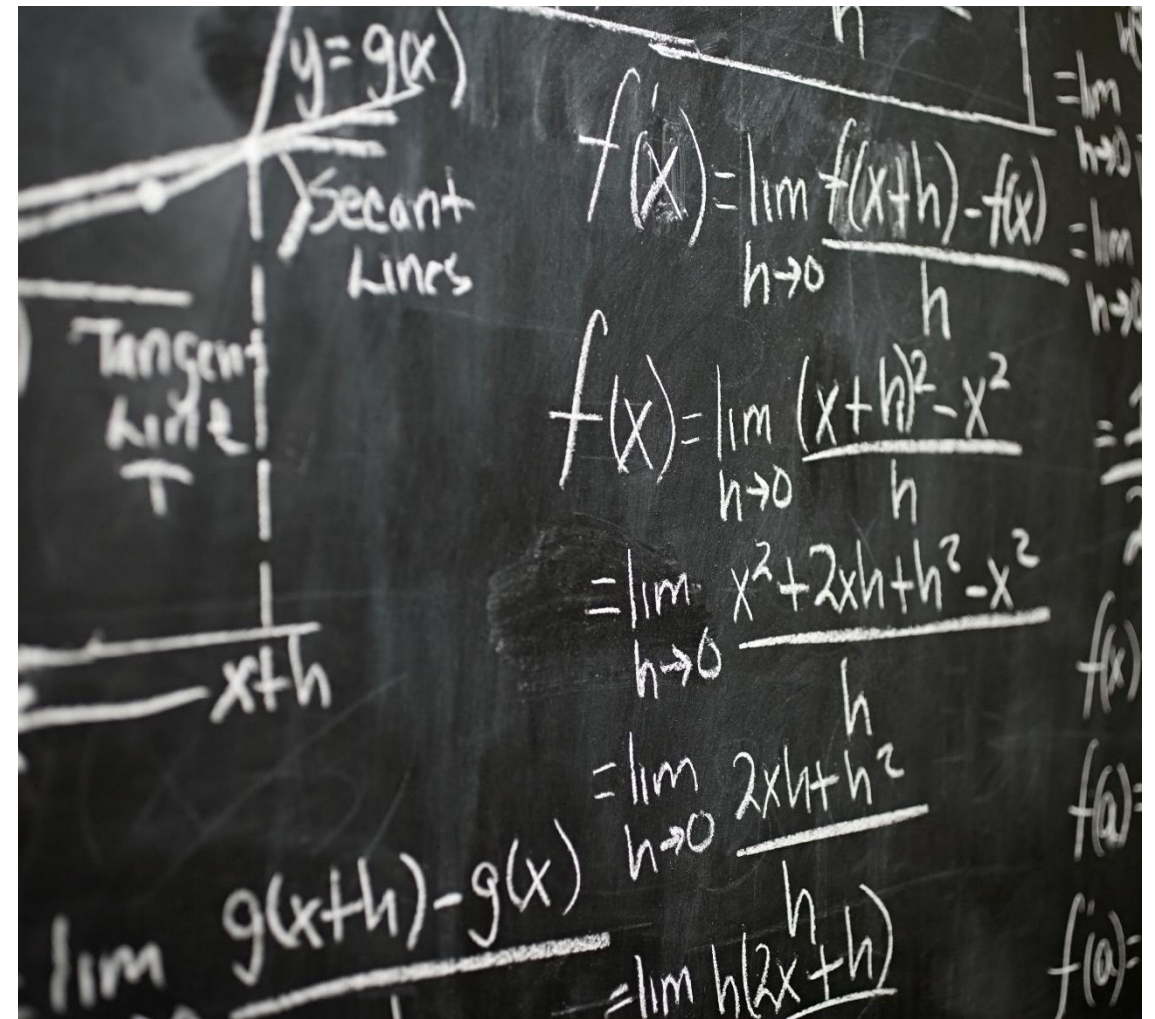 y=g(x)
Secant
Lines
Tangent
Line
T
x+h
lim g(x+h)-g(x)
h
f'(x)=lim f(x+h)-f(x)
h→0 h
f(x)=lim (x+h)²-x²
h→0 h
=lim x²+2xh+h²-x²
h→0 h
=lim 2xh+h²
h→0 h
=lim h(2x+h)
=lim
h→0
=lim
h→0
f(x)
f(a)=
f'(a)=